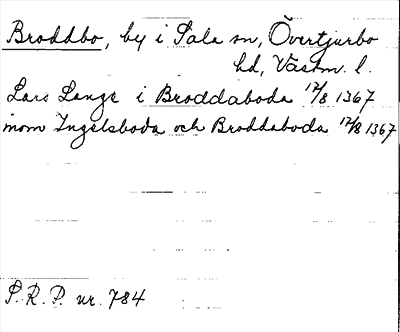 Broddbo, by i Sala sn, Övertjurbo
hd, Västm. l.
Lars Lange i Broddaboda 17/8 1367
inom Ingelsboda och Broddaboda 17/8 1367
S. R. P. nr. 784